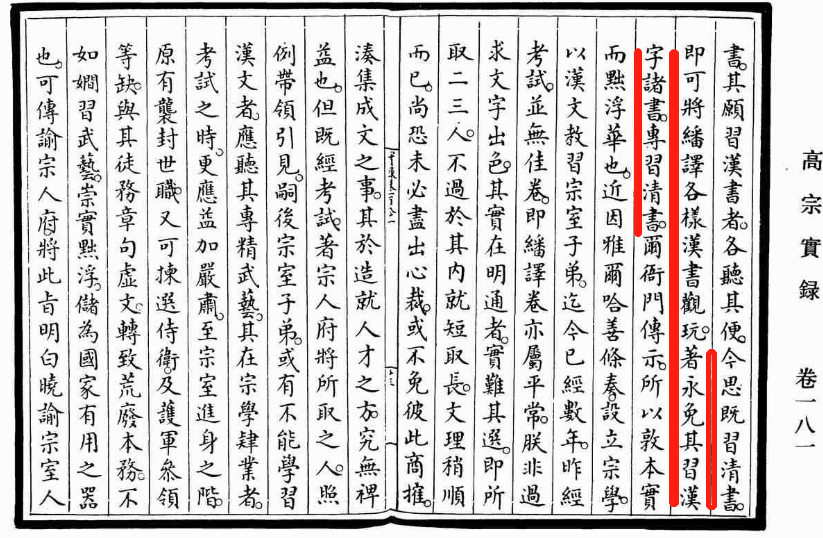 高宗實録 卷一八一
書。其願習漢書者。各聽其便。今思既習清書。
即可將繙譯各樣漢書觀玩。著永免其習漢
字諸書。專習清書。爾衙門傳示。所以敦本實
而黜浮華也。近因雅爾哈善條奏。設立宗學。
以漢文教習宗室子弟。迄今已經數年。昨經
考試。並無佳卷。即繙譯卷亦屬平常。朕非過
求文字出色。其實在明通者。實難其選。即所
取二三人。不過於其內就短取長。文理稍順
而已。尚恐未必盡出心裁。或不免彼此商搉。
湊集成文之事。其於造就人才之方。究無裨
益也。但既經考試。著宗人府將所取之人。照
例帶領引見。嗣後宗室子弟。或有不能學習
漢文者。應聽其專精武藝。其在宗學肄業者。
考試之時。更應益加嚴肅。至宗室進身之階。
原有襲封世職。又可揀選侍衛。及護軍參領
等缺。與其徒務章句虛文。轉致荒廢本務。不
如嫺習武藝。崇實黜浮。儲為國家有用之器
也。可傳諭宗人府將此旨明白曉諭宗室人